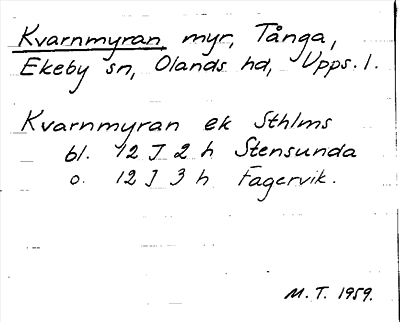 Kvarnmyran myr, Tånga,
Ekeby sn, Olands hd, Upps. l.
Kvarnmyran ek Sthlms
bl. 12 J 2 h Stensunda
o. 12 J 3 h Fagervik.
M. T. 1959.